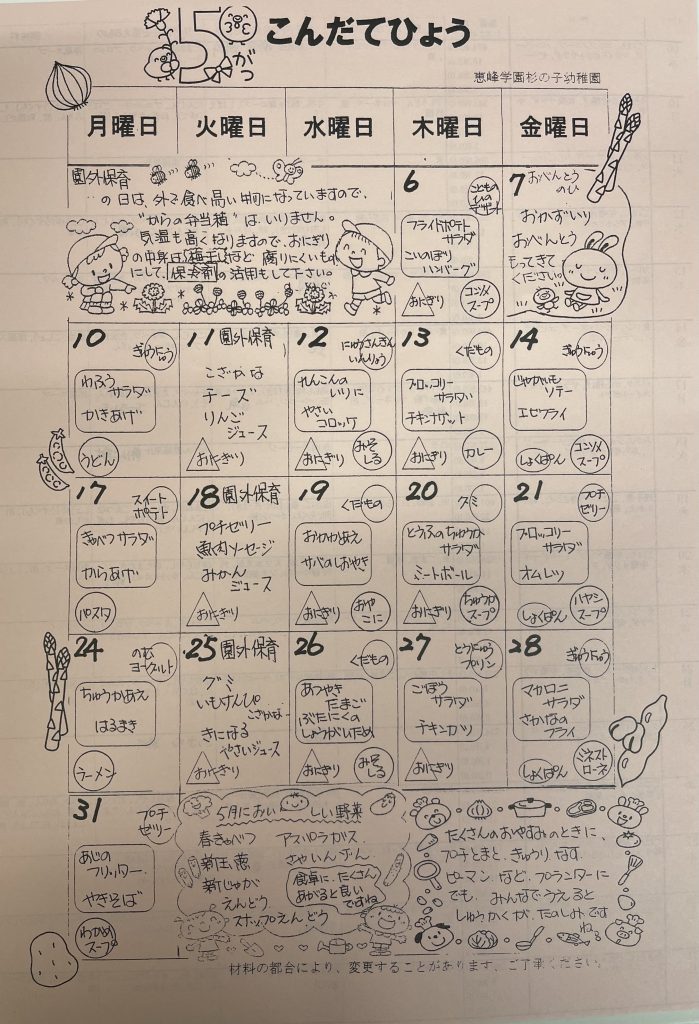 5がつ こんだてひょう
恵峰学園杉の子幼稚園
月曜日 火曜日 水曜日 木曜日 金曜日
園外保育
の日は、外で食べ易い物になっていますので、
"からの弁当箱"は、いりません。
気温も高くなりますので、おにぎり
の中身は、梅干しなど腐りにくいもの
にして、保冷剤の活用もして下さい。
6
こどもの
ひの
デザート
フライドポテト
サラダ
こいのぼり
ハンバーグ
おにぎり
コンソメ
スープ
7 おべんとう
のひ
おかずいり
おべんとう
もってきて
ください。
10 ぎゅうにゅう
わふう
サラダ
かきあげ
うどん
11 園外保育
こざかな
チーズ
りんご
ジュース
おにぎり
12 にゅうさんきん
いんりょう
れんこんの
いりに
やさい
コロッケ
おにぎり
みそ
しる
13 くだもの
ブロッコリー
サラダ
チキンナゲット
おにぎり
カレー
14 ぎゅうにゅう
じゃがいも
ソテー
エビフライ
しょくぱん
コンソメ
スープ
17 スイート
ポテト
きゃべつサラダ
からあげ
パスタ
18 園外保育
プチゼリー
魚肉ソーセージ
みかん
ジュース
おにぎり
19 くだもの
おかかあえ
サバのしおやき
おにぎり
おや
こに
20 グミ
とうふのちゅうか
サラダ
ミートボール
おにぎり
ちゅうか
スープ
21 プチ
ゼリー
ブロッコリー
サラダ
オムレツ
しょくぱん
ハヤシ
スープ
24 のむ
ヨーグルト
ちゅうかあえ
はるまき
ラーメン
25 園外保育
グミ
いもけんぴ
こざかな
きになる
やさいジュース
おにぎり
26 くだもの
あつやき
たまご
ぶたにくの
しょうがいため
おにぎり
みそ
しる
27 とうにゅう
プリン
ごぼう
サラダ
チキンカツ
おにぎり
28 ぎゅうにゅう
マカロニ
サラダ
さかなの
フライ
しょくぱん
ミネスト
ローネ
31 プチ
ゼリー
あじの
フリッター
やきそば
わかめ
スープ
5月においしい野菜
春きゃべつ アスパラガス
新玉葱 さやいんげん
新じゃが
えんどう
スナップえんどう
食卓に、たくさん
あがると良い
ですね
たくさんのおやすみのときに、
プチとまと、きゅうり、なす、
ピーマン、など、プランターに
でも、みんなでうえると
しゅうかくが、たのしみです
ねぇ
材料の都合により、変更することがあります、ご了承ください。